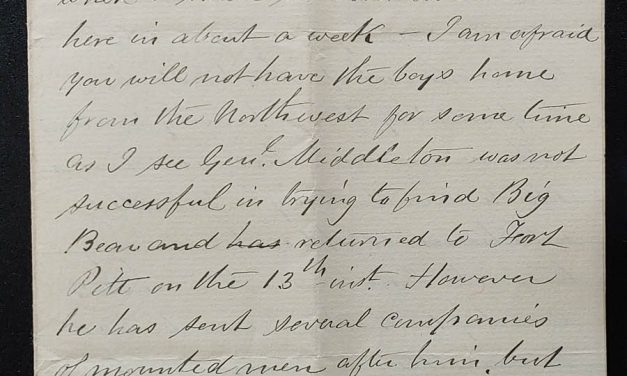 here in about a week – I am afraid
you will not have the boys home
from the Northwest for some time
as I see Genl. Middleton was not
successful in trying to find Big
Bear and has returned to Fort
Pitt on the 13th inst. However
he has sent several companies
of mounted men after him, but